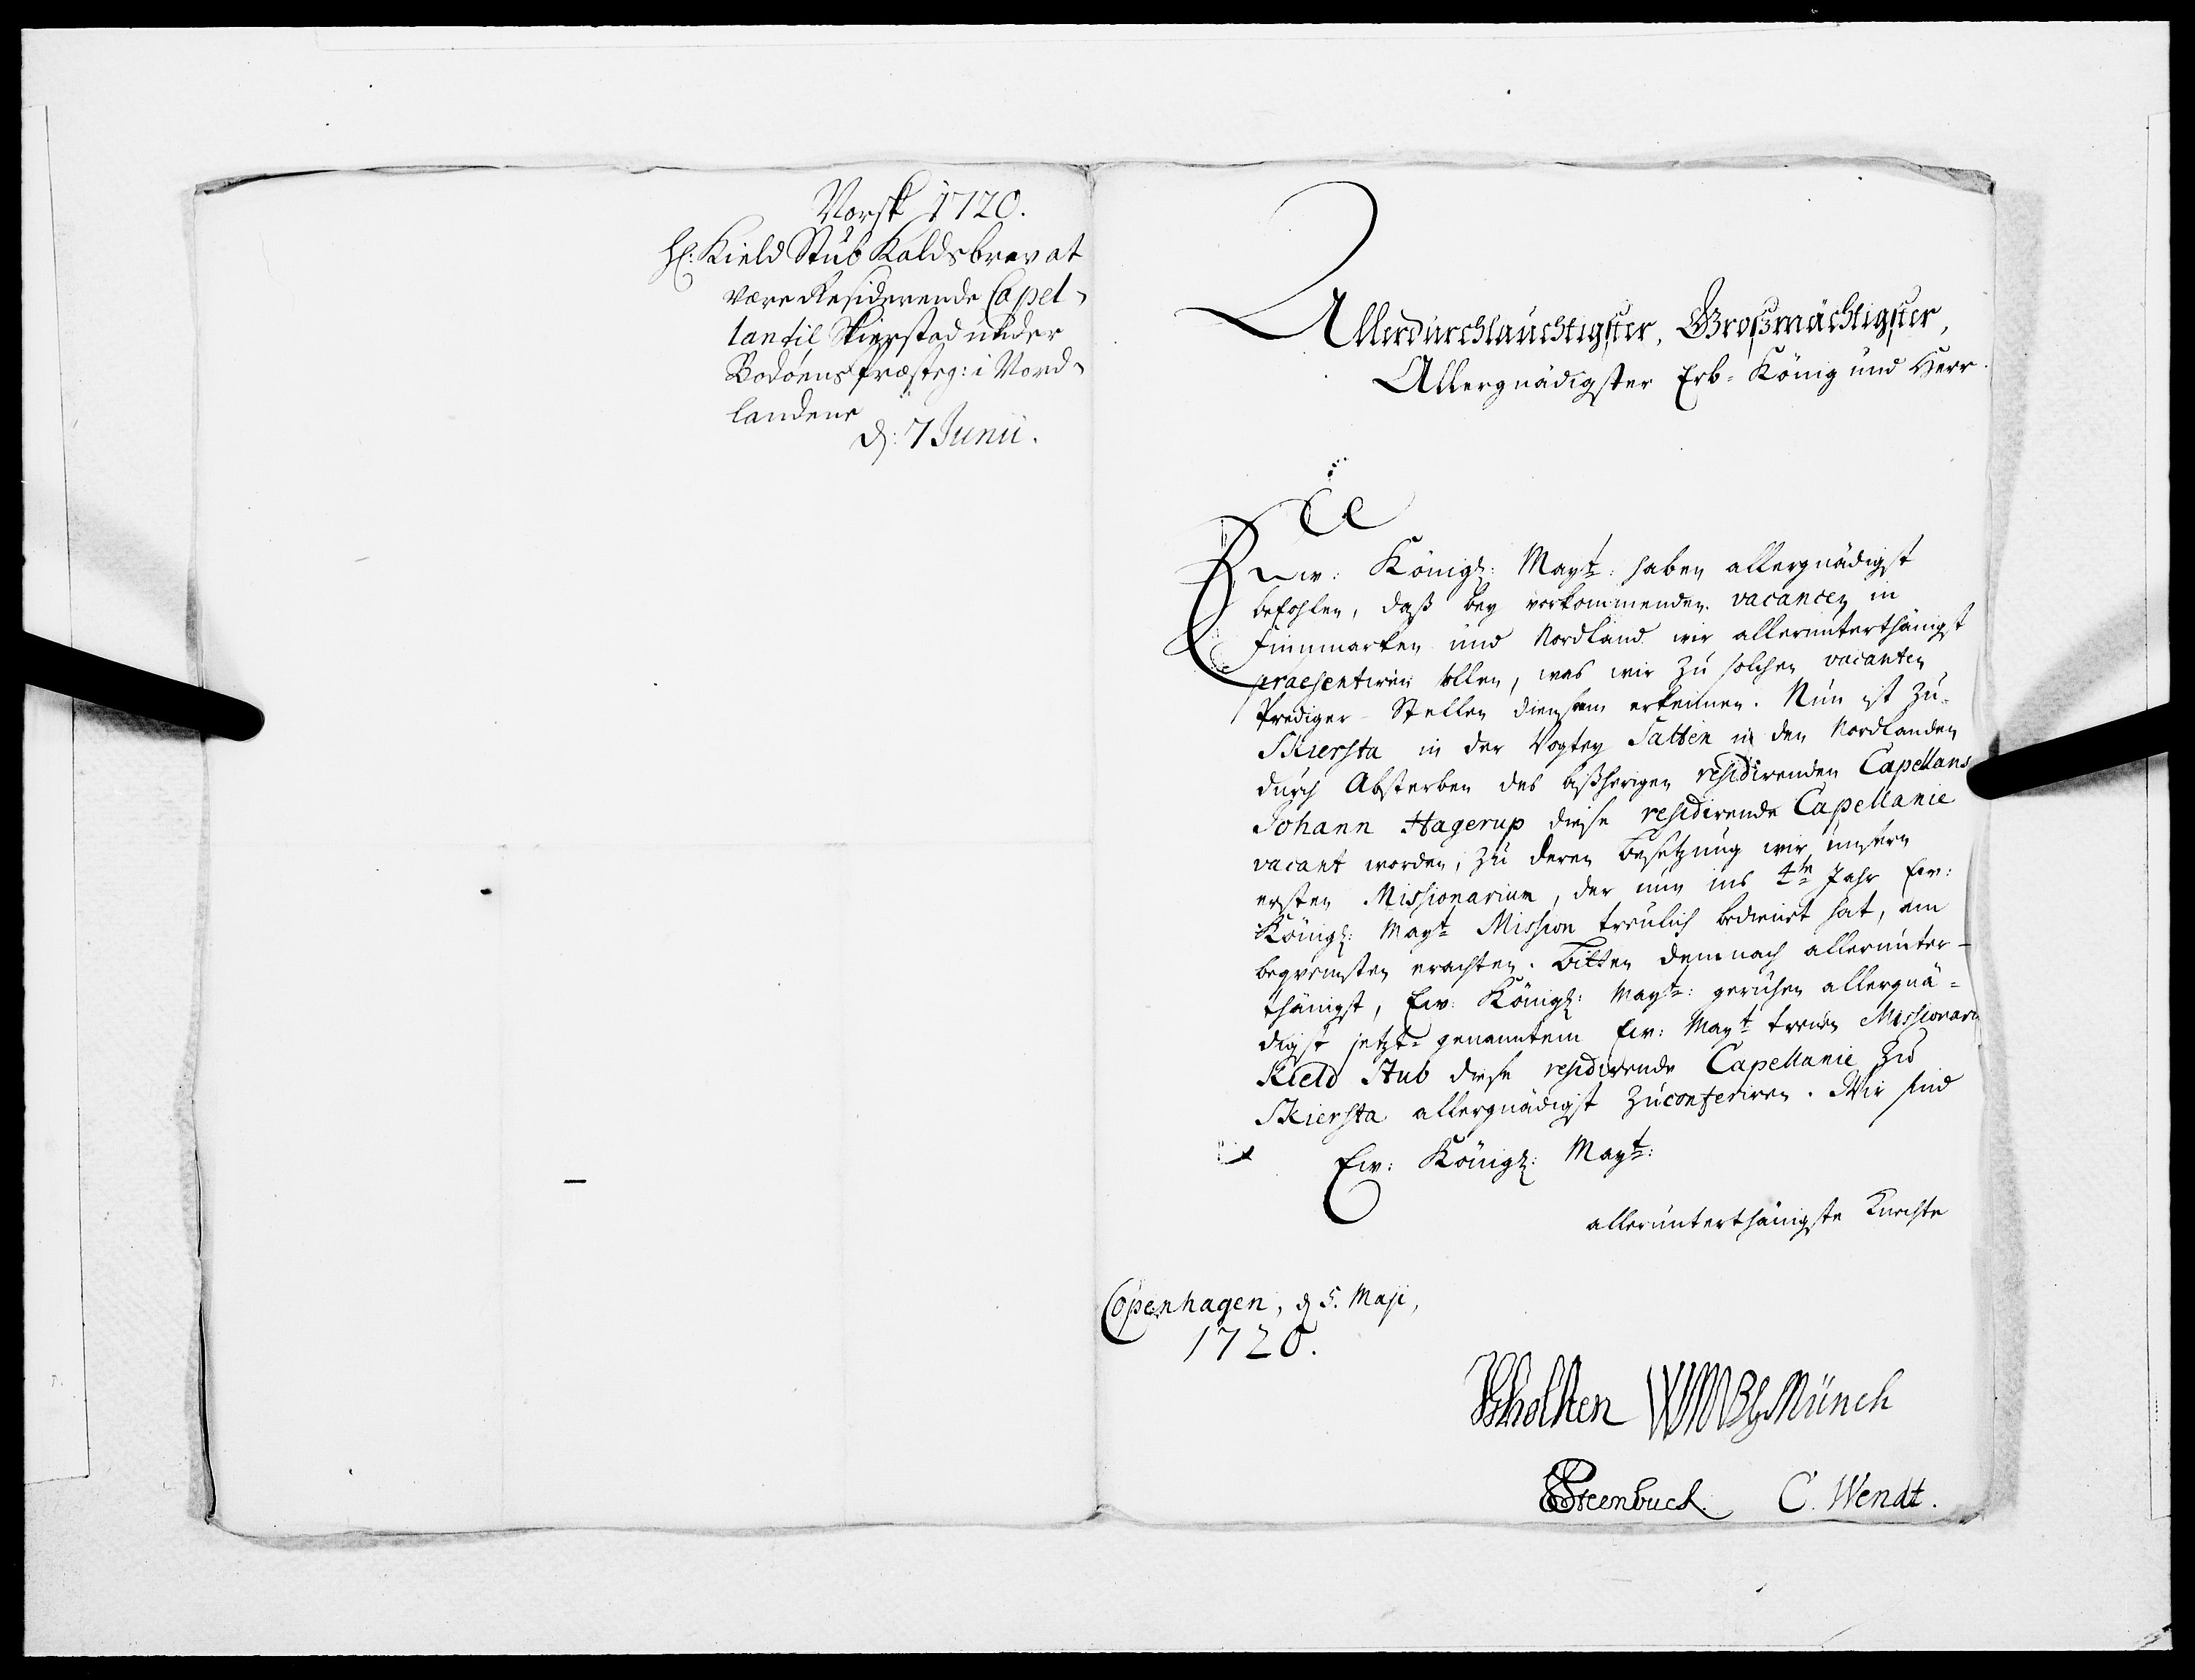 Norsk 1720.
Hl: Kield Stub Kaldsbrev at
være Residerende Capel-
lan til Skierstad under
Bodöens Præsteg: i Nord-
landene
d: 7 Junii.
Allerdurchlauchtigster, Großmächtigster,
Allergnädigster Erb-König und Herr.
Ew: Königl: Mayt: haben allergnädigst
befohlen, daß bey vorkommenden vacancen in
Finnmarken und Nordland wir allerunterthänigst
praesentiren sollen, was wir zu solchen vacanten
Prediger-Stellen diensam erkennen. Nun ist zu
Skiersta in der Vogtey Salten in den Nordlanden
durch Absterben des bißherigen residirenden Capellans
Johann Hagerup diese residirende Capellanie
vacant worden, zu deren Besetzung wir unsern
ersten Missionarium, der nun ins 4te Jahr Ew:
Königl: Mayt Mission treulich bedienet hat, am
beqvemsten erachten. Bitten demnach allerunter-
thänigst, Ew: Königl: Mayt: geruhen allergnä-
digst jetzt-genanntem Ew: Mayt treuen Missionari
Kield Stub diese residirende Capellanie zu
Skiersta allergnädigst zu conferiren. Wir sind
Ew: Königl: Mayt:
allerunterthänigste Knechte
Copenhagen, d 5. Maji,
1720.
JGholsten WMBgMünch
Steenbuch. C. Wendt.